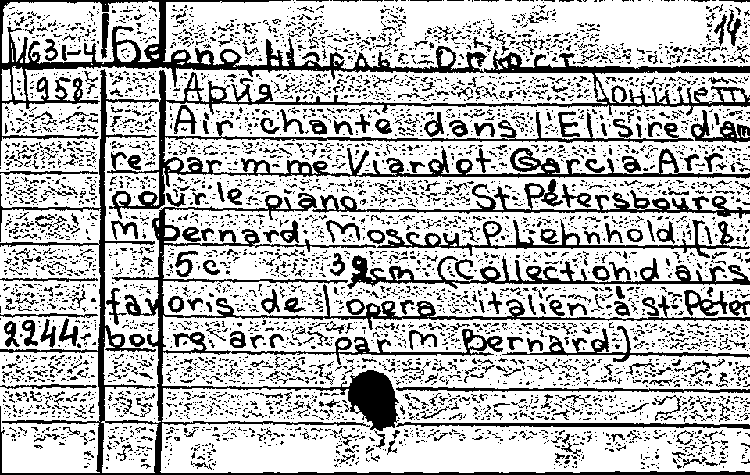 14
М631-4 Берио Шарль-Огюст
958 Ария ... Доницетти
Air chanté dans l'Elisire d'am
re par m-me Viardot Garcia. Arr.
pour le piano. St-Pétersbourg,
M. Bernard, Moscou, P. Lehnhold, [18
5 c. 32cm (Collection d'airs
favoris de l'opera italien à St-Péter
2244 bourg arr par M Bernard.)